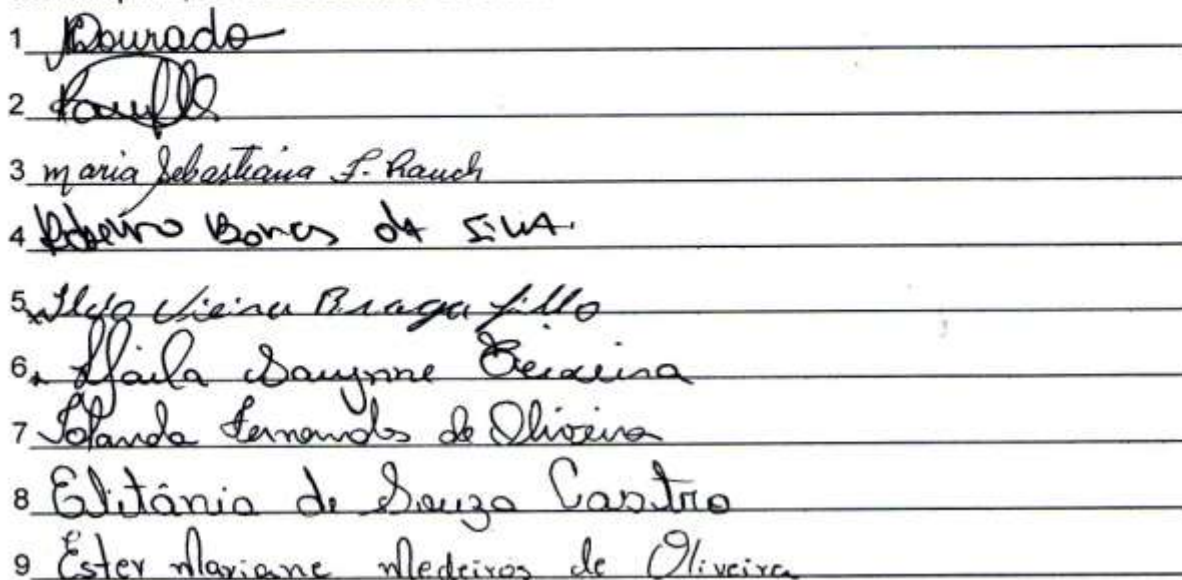 1 Dourado
2
3 maria Sebastiana F. Rauch
4 Ribeiro Borges da SiLVA.
5 Vieira Braga filho
6 Sauynne Teixeira
7 Iolanda Fernandes de Oliveira
8 Elitânia de Souza Castro
9 Ester Mariane Medeiros de Oliveira